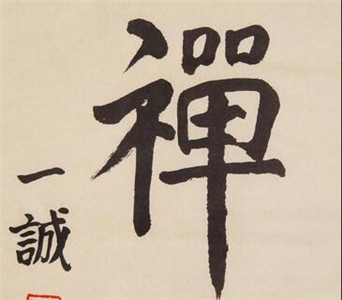 禪
一誠